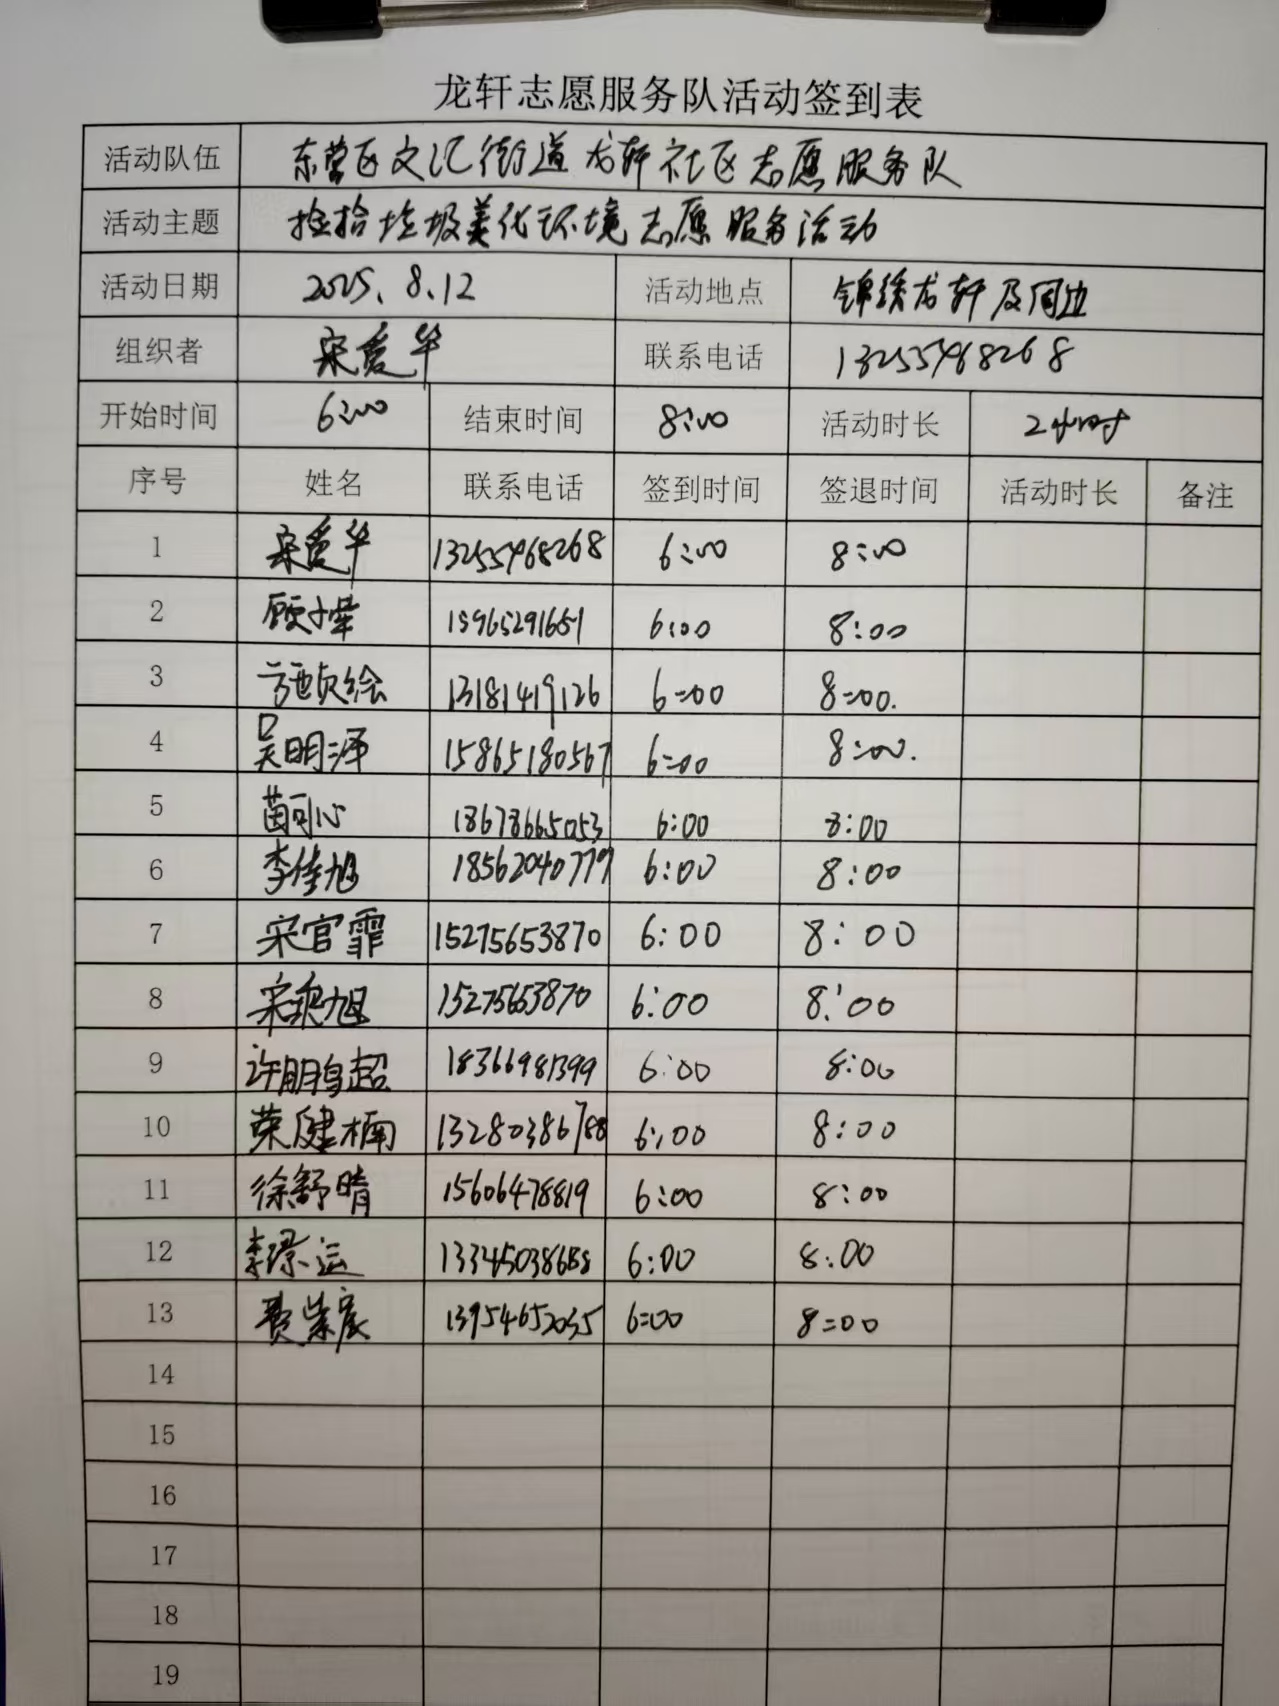 龙轩志愿服务队活动签到表
活动队伍 东营区文汇街道龙轩社区志愿服务队
活动主题 捡拾垃圾美化环境志愿服务活动
活动日期 2025.8.12 活动地点 锦绣龙轩及周边
组织者 宋爱华 联系电话 13255468268
开始时间 6:00 结束时间 8:00 活动时长 2小时
序号 姓名 联系电话 签到时间 签退时间 活动时长 备注
1 宋爱华 13255468268 6:00 8:00
2 15965291651 6:00 8:00
3 13181419126 6:00 8:00.
4 吴明泽 15865180567 6:00 8:00.
5 苗可心 18678665053 6:00 8:00
6 李佳旭 6:00 8:00
7 宋官霏 15275653870 6:00 8:00
8 15275653870 6:00 8:00
9 许鹏超 18366981399 6:00 8:00
10 荣健楠 13280386788 6:00 8:00
11 徐舒晴 15606478819 6:00 8:00
12 李璟运 6:00 8:00
13 费紫宸 13954652035 6:00 8:00
14
15
16
17
18
19